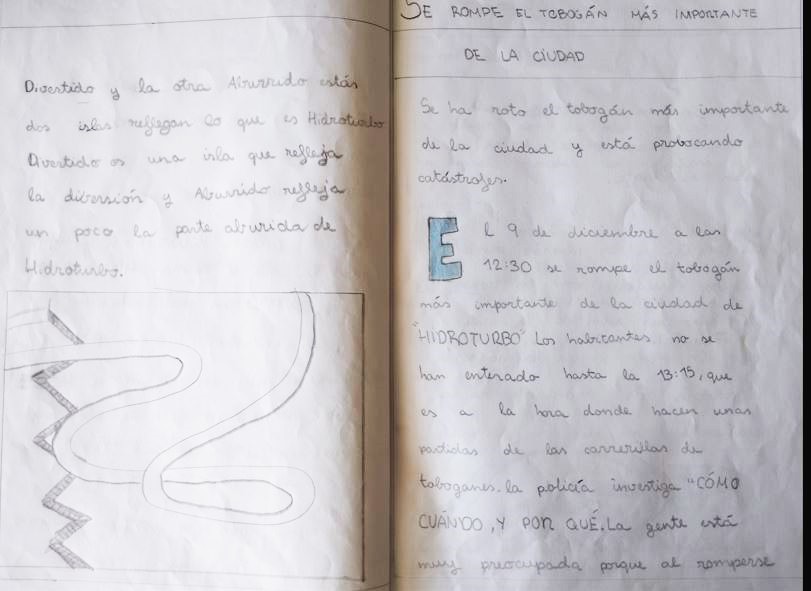 Divertido y la otra Aburrido estás
dos islas reflegan lo que es Hidroturbo
Divertido es una isla que refleja
la diversión y Aburrido refleja
un poco la parte aburida de
Hidroturbo.
SE ROMPE EL TOBOGÁN MÁS IMPORTANTE
DE LA CIUDAD
Se ha roto el tobogán más importante
de la ciudad y está probocando
catástrofes.
El 9 de diciembre a las
12:30 se rompe el tobogán
más importante de la ciudad de
"HIDROTURBO" Los habitantes no se
han enterado hasta la 13:15, que
es a la hora donde hacen unas
partidas de las carrerillas de
toboganes. la policía investiga "CÓMO
CUÁNDO, Y POR QUÉ. La gente está
muy preocupada porque al romperse